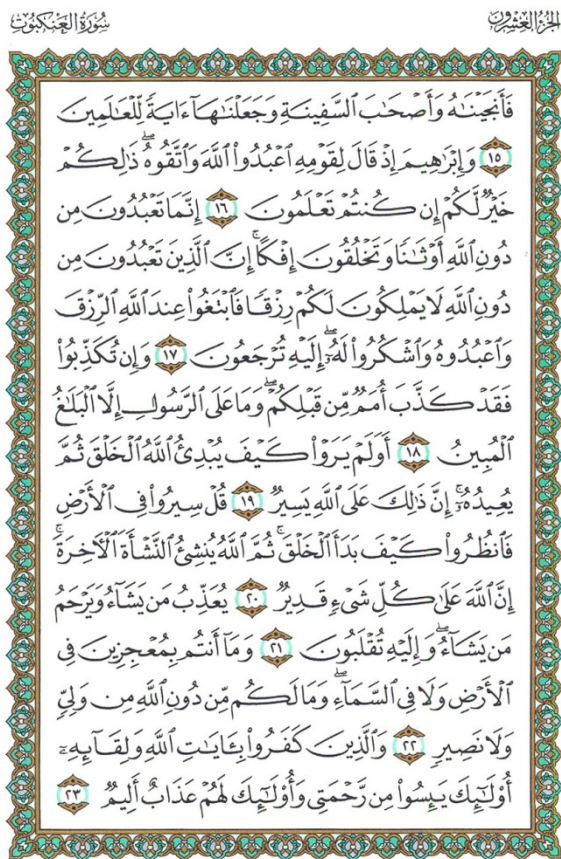 الجزء العشرون
سورة العنكبوت
فَأَنجَيْنَٰهُ وَأَصْحَٰبَ ٱلسَّفِينَةِ وَجَعَلْنَٰهَآ ءَايَةً لِّلْعَٰلَمِينَ
١٥ وَإِبْرَٰهِيمَ إِذْ قَالَ لِقَوْمِهِ ٱعْبُدُوا۟ ٱللَّهَ وَٱتَّقُوهُ ۖ ذَٰلِكُمْ
خَيْرٌ لَّكُمْ إِن كُنتُمْ تَعْلَمُونَ ١٦ إِنَّمَا تَعْبُدُونَ مِن
دُونِ ٱللَّهِ أَوْثَٰنًا وَتَخْلُقُونَ إِفْكًا ۚ إِنَّ ٱلَّذِينَ تَعْبُدُونَ مِن
دُونِ ٱللَّهِ لَا يَمْلِكُونَ لَكُمْ رِزْقًا فَٱبْتَغُوا۟ عِندَ ٱللَّهِ ٱلرِّزْقَ
وَٱعْبُدُوهُ وَٱشْكُرُوا۟ لَهُۥٓ ۖ إِلَيْهِ تُرْجَعُونَ ١٧ وَإِن تُكَذِّبُوا۟
فَقَدْ كَذَّبَ أُمَمٌ مِّن قَبْلِكُمْ ۖ وَمَا عَلَى ٱلرَّسُولِ إِلَّا ٱلْبَلَٰغُ
ٱلْمُبِينُ ١٨ أَوَلَمْ يَرَوْا۟ كَيْفَ يُبْدِئُ ٱللَّهُ ٱلْخَلْقَ ثُمَّ
يُعِيدُهُۥٓ ۚ إِنَّ ذَٰلِكَ عَلَى ٱللَّهِ يَسِيرٌ ١٩ قُلْ سِيرُوا۟ فِى ٱلْأَرْضِ
فَٱنظُرُوا۟ كَيْفَ بَدَأَ ٱلْخَلْقَ ۚ ثُمَّ ٱللَّهُ يُنشِئُ ٱلنَّشْأَةَ ٱلْءَاخِرَةَ ۚ
إِنَّ ٱللَّهَ عَلَىٰ كُلِّ شَىْءٍ قَدِيرٌ ٢٠ يُعَذِّبُ مَن يَشَآءُ وَيَرْحَمُ
مَن يَشَآءُ ۖ وَإِلَيْهِ تُقْلَبُونَ ٢١ وَمَآ أَنتُم بِمُعْجِزِينَ فِى
ٱلْأَرْضِ وَلَا فِى ٱلسَّمَآءِ ۖ وَمَا لَكُم مِّن دُونِ ٱللَّهِ مِن وَلِىٍّ
وَلَا نَصِيرٍ ٢٢ وَٱلَّذِينَ كَفَرُوا۟ بِـَٔايَٰتِ ٱللَّهِ وَلِقَآئِهِۦٓ
أُو۟لَٰٓئِكَ يَئِسُوا۟ مِن رَّحْمَتِى وَأُو۟لَٰٓئِكَ لَهُمْ عَذَابٌ أَلِيمٌ ٢٣